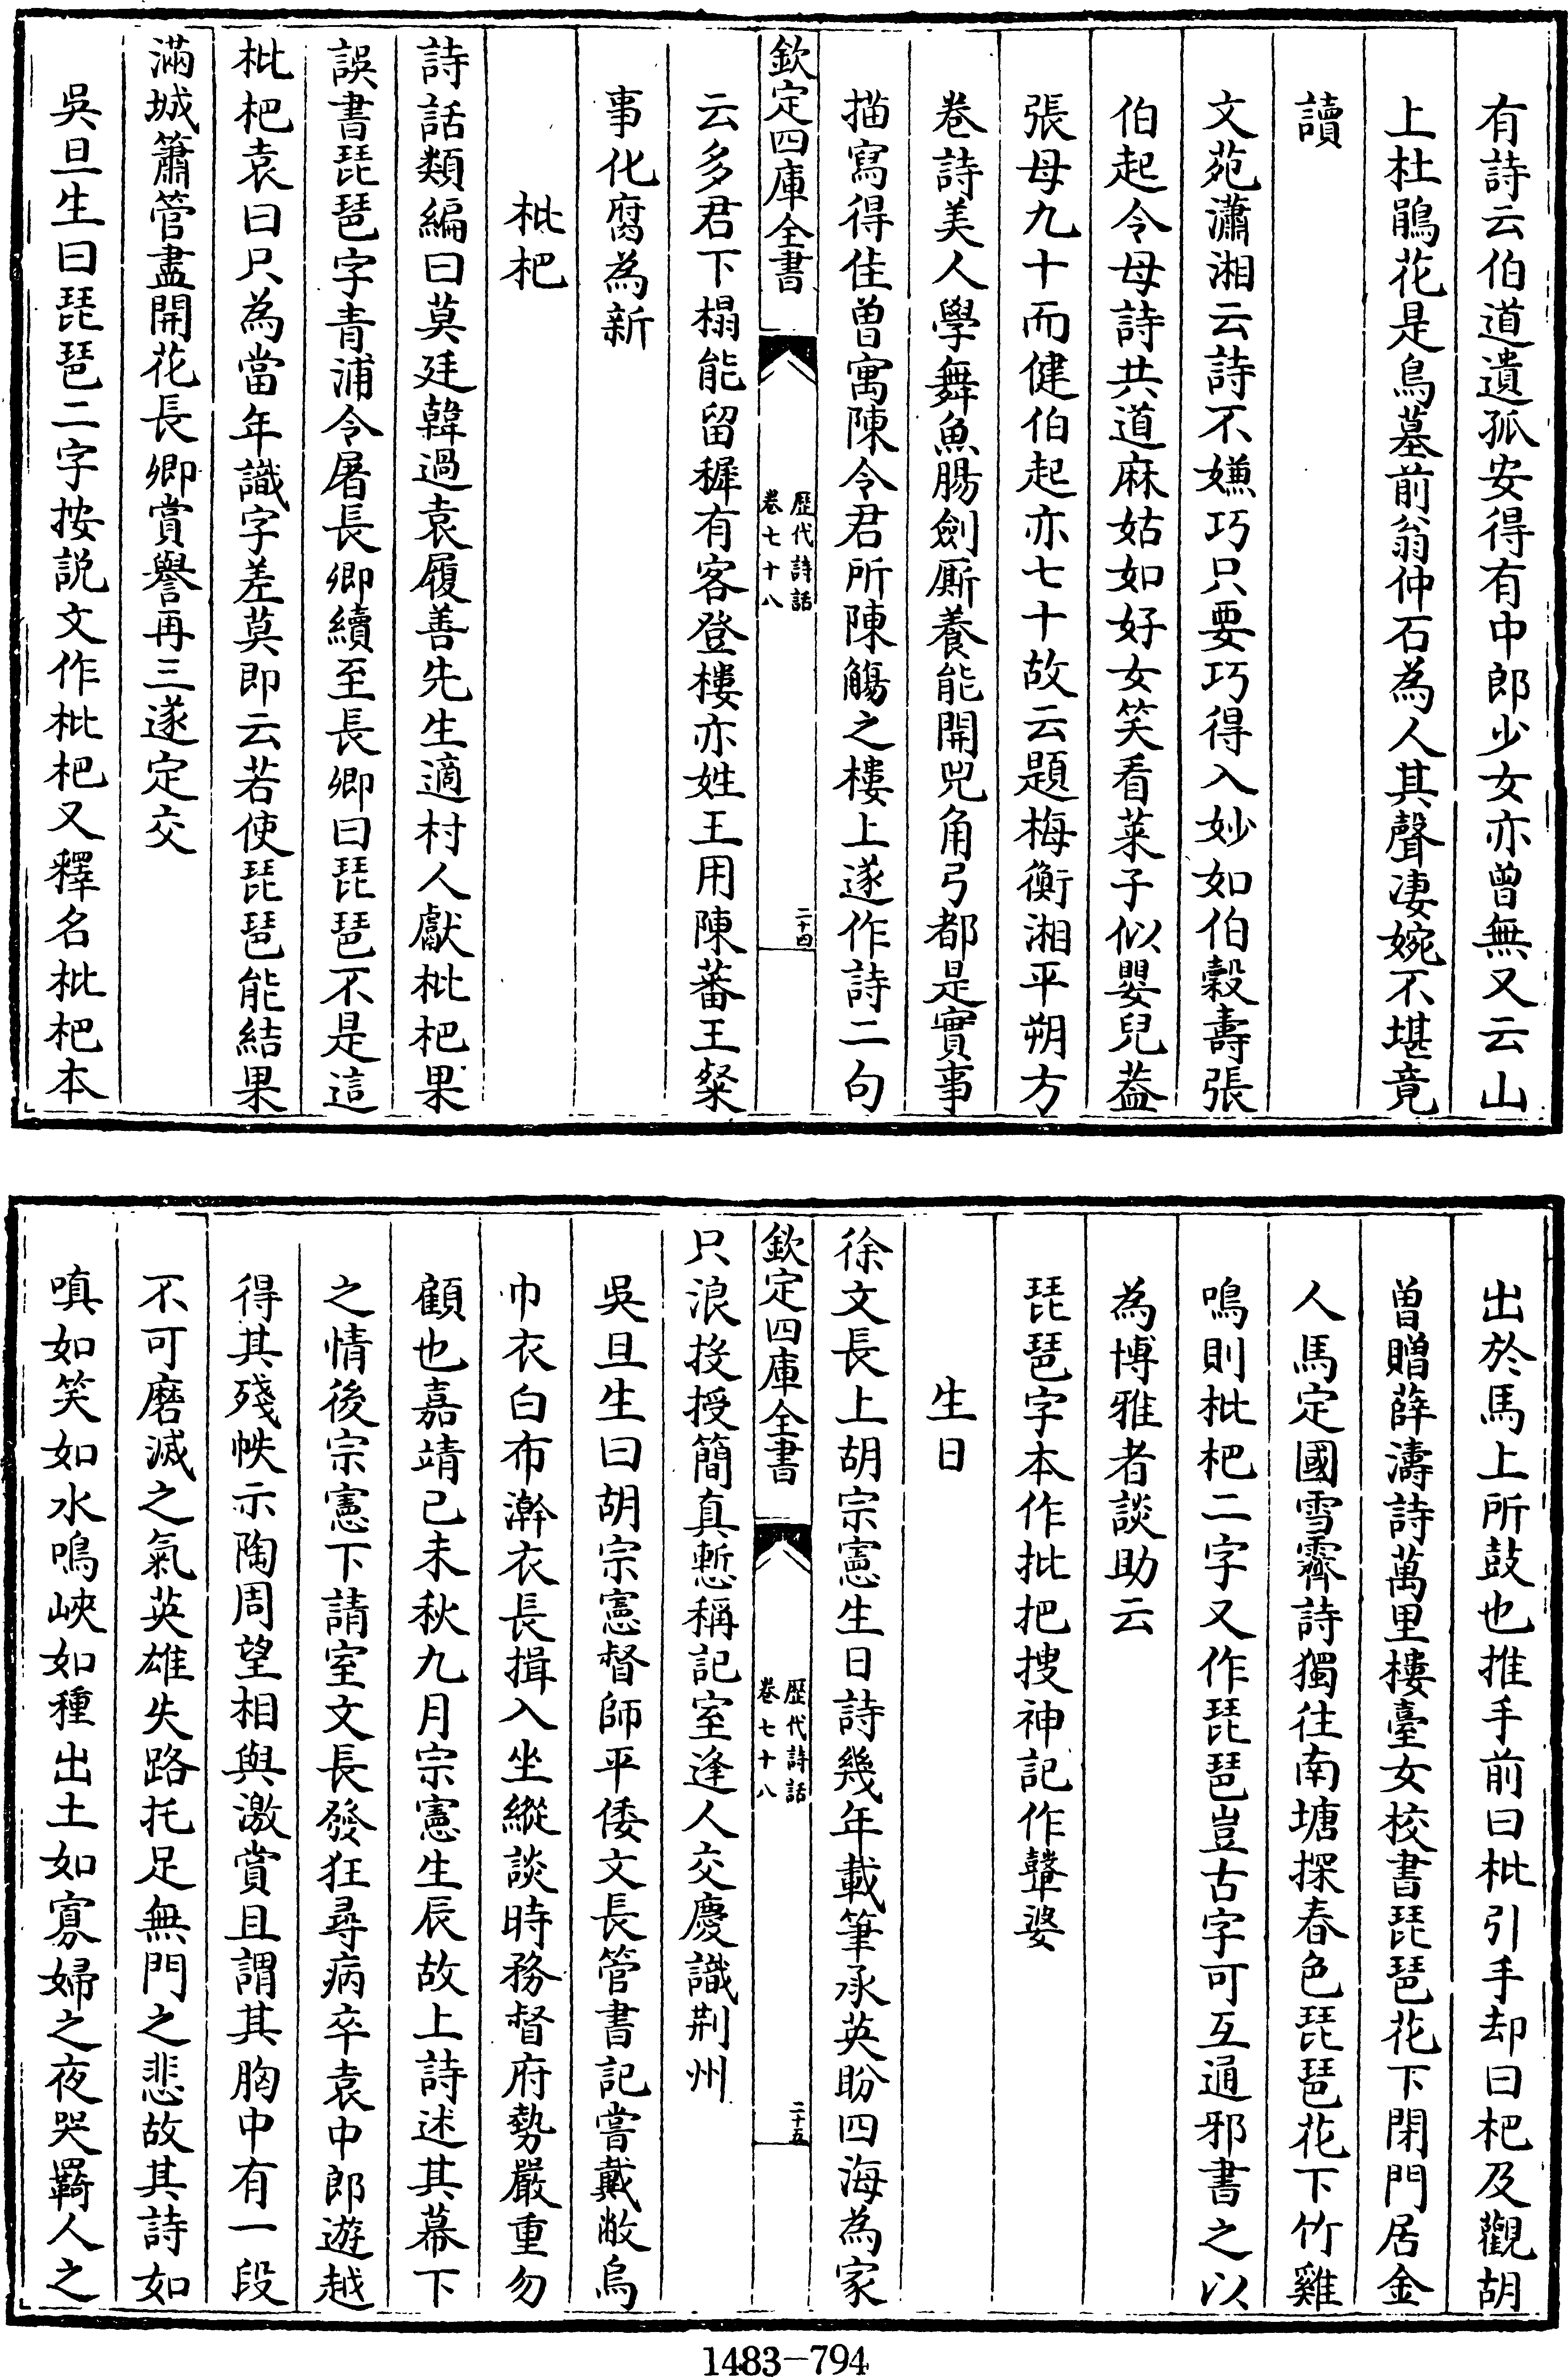 有詩云伯道遺孤安得有中郎少女亦曾無又云山
上杜鵑花是鳥墓前翁仲石為人其聲凄婉不堪竟
讀
文苑瀟湘云詩不嫌巧只要巧得入妙如伯穀壽張
伯起令母詩共道麻姑如好女笑看萊子似嬰兒葢
張母九十而健伯起亦七十故云題梅衡湘平朔方
巻詩美人學舞魚腸劍厮養能開兕角弓都是實事
描寫得佳曾寓陳令君所陳觴之樓上遂作詩二句
欽定四庫全書
歷代詩話
卷七十八
二十四
云多君下榻能留穉有客登樓亦姓王用陳蕃王粲
事化腐為新
枇杷
詩話類編曰莫廷韓過袁履善先生適村人獻枇杷果
誤書琵琶字青浦令屠長卿續至長卿曰琵琶不是這
枇杷袁曰只為當年識字差莫即云若使琵琶能結果
滿城簫管盡開花長卿賞譽再三遂定交
吳旦生曰琵琶二字按說文作枇杷又釋名枇杷本
出於馬上所鼓也推手前曰枇引手却曰杷及觀胡
曾贈薛濤詩萬里樓臺女校書琵琶花下閉門居金
人馬定國雪霽詩獨往南塘探春色琵琶花下竹雞
鳴則枇杷二字又作琵琶豈古字可互通邪書之以
為博雅者談助云
琵琶字本作批把搜神記作鼙婆
生日
徐文長上胡宗憲生日詩幾年載筆承英盼四海為家
欽定四庫全書
歷代詩話
卷七十八
二十五
只浪投授簡真慙稱記室逢人交慶識荆州
吳旦生曰胡宗憲督師平倭文長管書記嘗戴敝烏
巾衣白布澣衣長揖入坐縱談時務督府勢嚴重勿
顧也嘉靖己未秋九月宗憲生辰故上詩述其幕下
之情後宗憲下請室文長發狂尋病卒袁中郎遊越
得其殘帙示陶周望相與激賞且謂其胸中有一段
不可磨滅之氣英雄失路托足無門之悲故其詩如
嗔如笑如水鳴峽如種出土如寡婦之夜哭羇人之
1483-794